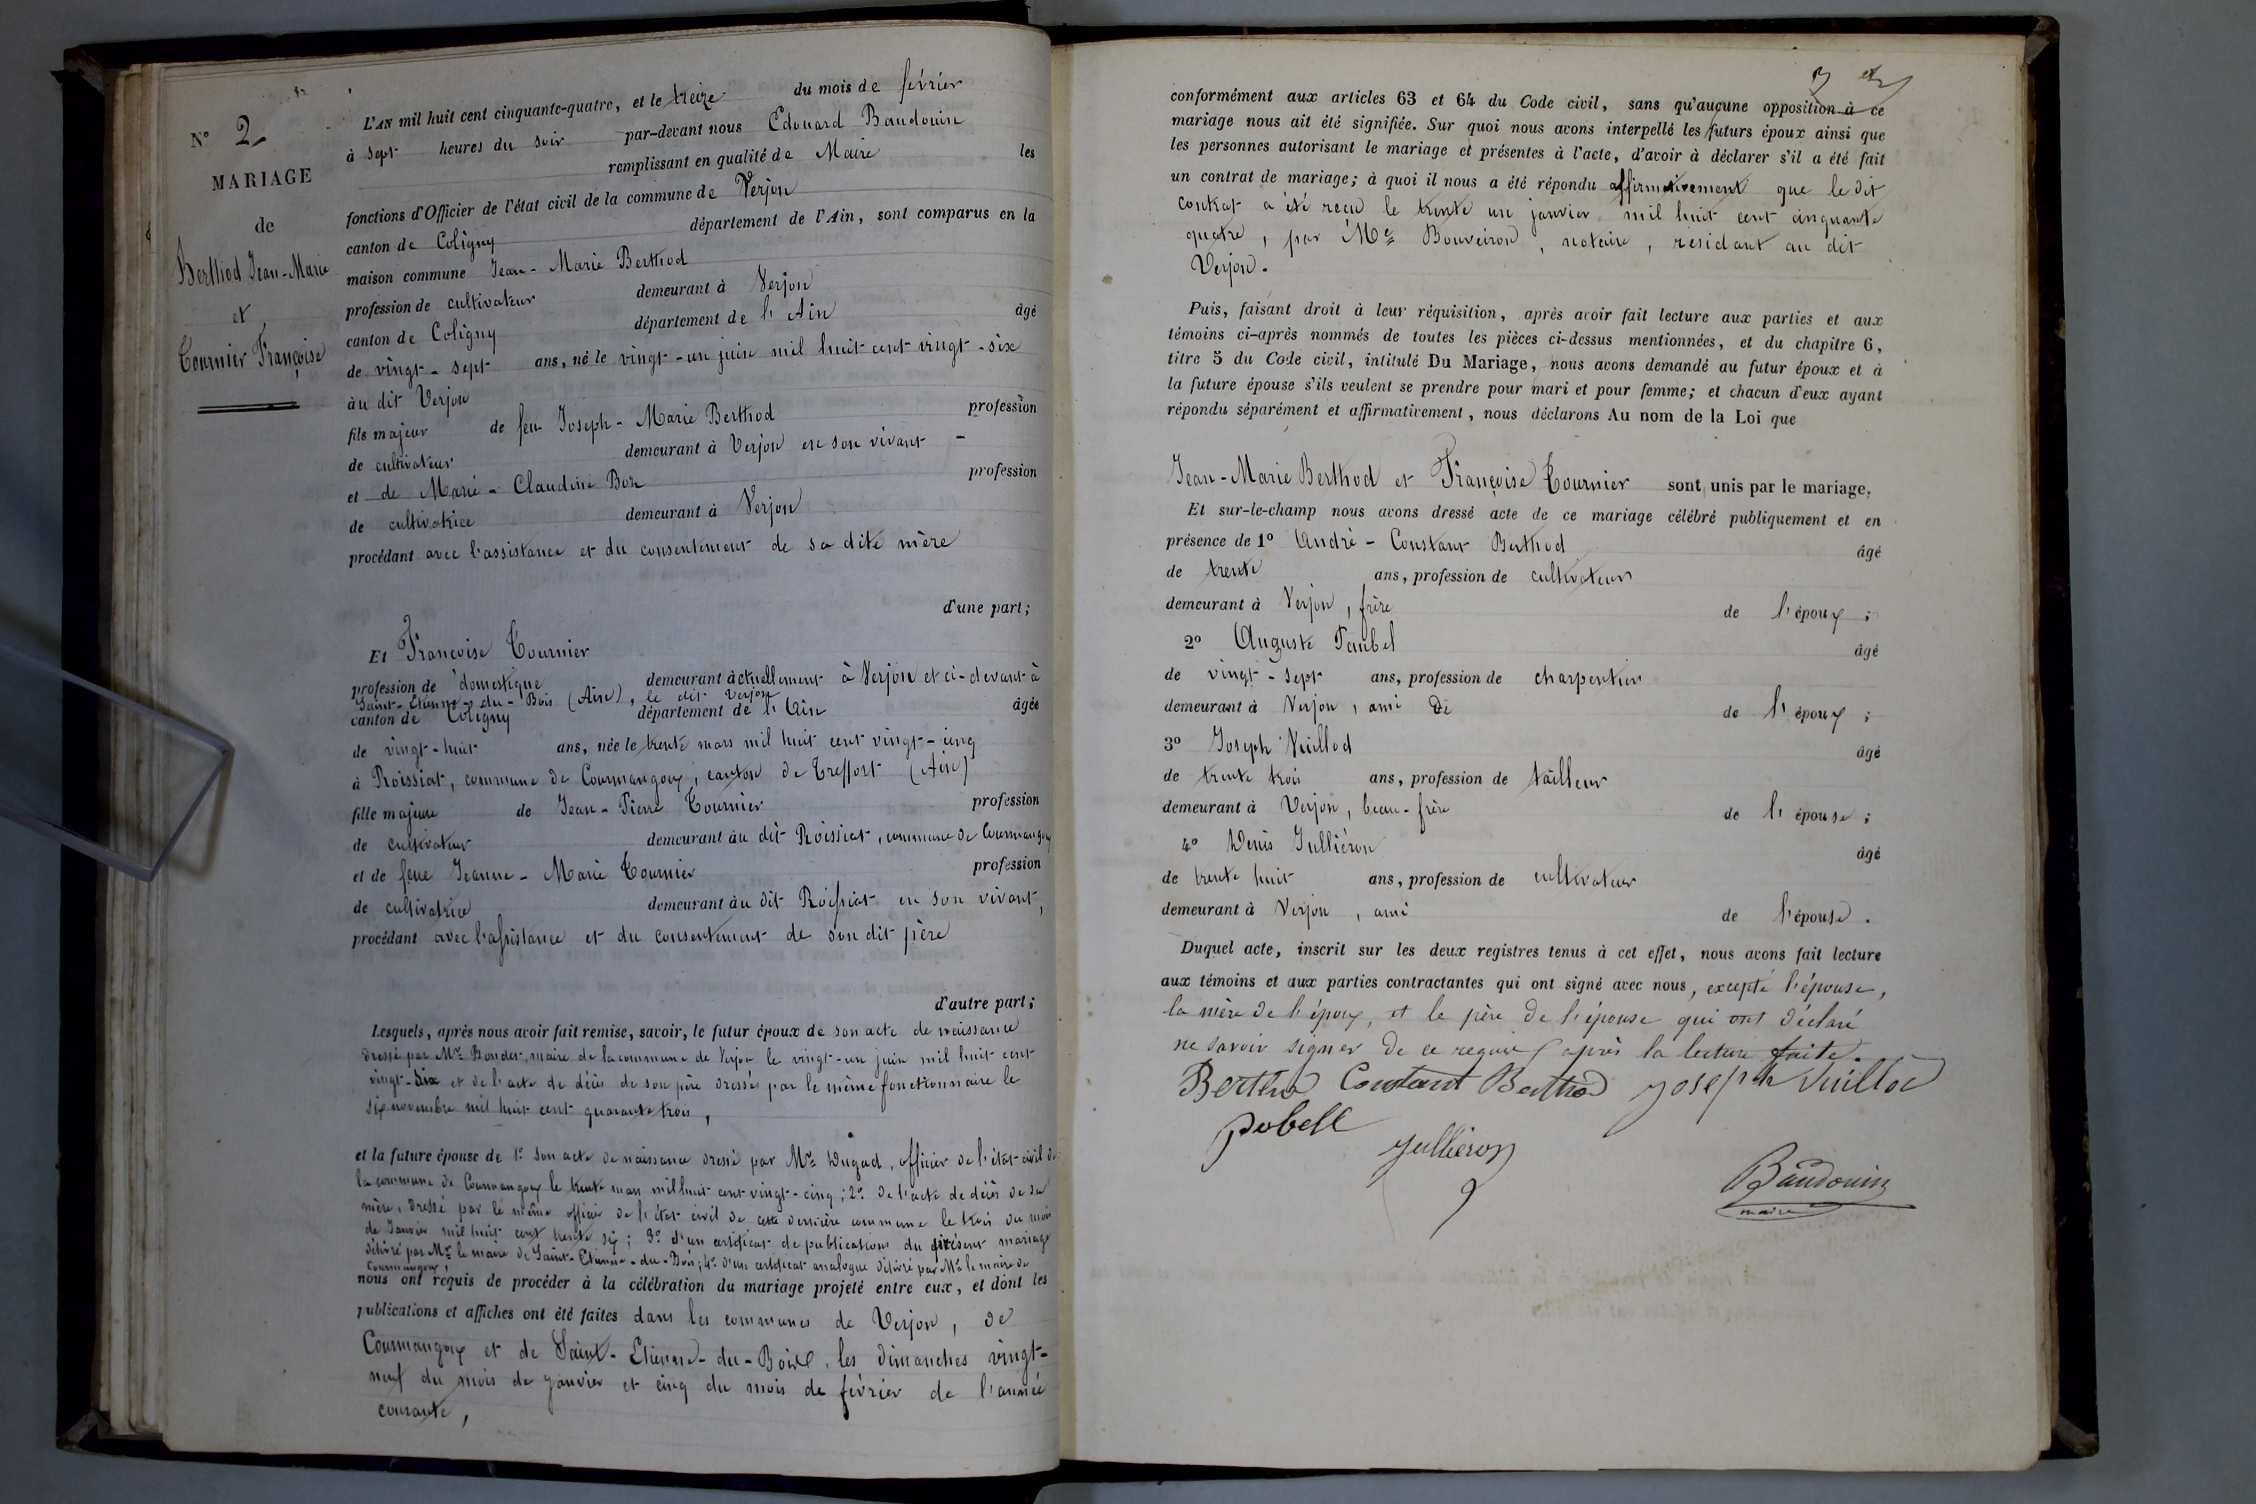 N° 2
MARIAGE
de
Berthod Jean-Marie
et
Tournier Françoise
L'AN mil huit cent cinquante-quatre, et le treize du mois de février
à sept heures du soir par-devant nous Edouard Baudouin
remplissant en qualité de Maire les
fonctions d'Officier de l'état civil de la commune de Verjon
canton de Coligny département de l'Ain, sont comparus en la
maison commune Jean-Marie Berthod
profession de cultivateur demeurant à Verjon
canton de Coligny département de l'Ain âgé
de vingt-sept ans, né le vingt-un juin mil huit cent vingt-six
àu dit Verjon
fils majeur de feu Joseph-Marie Berthod profession
de cultivateur demeurant à Verjon en son vivant -
et de Marie-Claudine Bon profession
de cultivatrice demeurant à Verjon
procédant avec l'assistance et du consentement de sa dite mère
d'une part;
Et Françoise Tournier
profession de domestique demeurant àctuellement à Verjon et ci-devant à
Saint-Etienne-du-Bois (Ain), le dit Verjon
canton de Coligny département de l'Ain âgée
de vingt-huit ans, née le trente mars mil huit cent vingt-cinq
à Roissiat, commune de Courmangoux, canton de Treffort (Ain)
fille majeure de Jean-Pierre Tournier profession
de cultivateur demeurant àu dit Roissiat, commune de Courmangoux
et de feue Jeanne-Marie Tournier profession
de cultivatrice demeurant àu dit Roissiat en son vivant,
procédant avec l'assistance et du consentement de son dit père
d'autre part;
Lesquels, après nous avoir fait remise, savoir, le futur époux de son acte de naissance
dressé par Mr. maire de la commune de Verjon le vingt-un juin mil huit cent
vingt-six et de l'acte de décès de son père dressé par le même fonctionnaire le
six novembre mil huit cent quarante trois,
et la future épouse de 1° son acte de naissance dressé par Mr. Dugad, officier de l'état-civil de
la commune de Courmangoux le trente mars mil huit cent vingt-cinq; 2° de l'acte de décès de sa
mère, dressé par le même officier de l'état civil de cette dernière commune le trois du mois
de Janvier mil huit cent trente six; 3° d'un certificat de publications du présent mariage
délivré par Mr. le maire de Saint-Etienne-du-Bois; 4° d'un certificat analogue délivré par Mr. le maire de
Courmangoux,
nous ont requis de procéder à la célébration du mariage projeté entre eux, et dont les
publications et affiches ont été faites dans les communes de Verjon, de
Courmangoux et de Saint-Etienne-du-Bois, les dimanches vingt-
neuf du mois de janvier et cinq du mois de février de l'année
courante,
3
conformément aux articles 63 et 64 du Code civil, sans qu'aucune opposition à ce
mariage nous ait été signifiée. Sur quoi nous avons interpellé les futurs époux ainsi que
les personnes autorisant le mariage et présentes à l'acte, d'avoir à déclarer s'il a été fait
un contrat de mariage; à quoi il nous a été répondu affirmativement que le dit
contrat a été reçu le trente un janvier mil huit cent cinquante
quatre, par Me Bouveiron, notaire, résidant au dit
Verjon.
Puis, faisant droit à leur réquisition, après avoir fait lecture aux parties et aux
témoins ci-après nommés de toutes les pièces ci-dessus mentionnées, et du chapitre 6,
titre 5 du Code civil, intitulé Du Mariage, nous avons demandé au futur époux et à
la future épouse s'ils veulent se prendre pour mari et pour femme; et chacun d'eux ayant
répondu séparément et affirmativement, nous déclarons Au nom de la Loi que
Jean-Marie Berthod et Françoise Tournier sont unis par le mariage.
Et sur-le-champ nous avons dressé acte de ce mariage célébré publiquement et en
présence de 1° André-Constant Berthod âgé
de trente ans, profession de cultivateur
demeurant à Verjon, frère de l'époux;
2° Auguste Paubel âgé
de vingt-sept ans, profession de charpentier
demeurant à Verjon, ami de l'époux;
3° Joseph Vuillod âgé
de trente trois ans, profession de tailleur
demeurant à Verjon, beau-frère de l'épouse;
4° Denis Julliéron âgé
de trente huit ans, profession de cultivateur
demeurant à Verjon, ami de l'épouse.
Duquel acte, inscrit sur les deux registres tenus à cet effet, nous avons fait lecture
aux témoins et aux parties contractantes qui ont signé avec nous, excepté l'épouse,
la mère de l'époux, et le père de l'épouse qui ont déclaré
ne savoir signer de ce requis après la lecture faite.
Berthod Constant Berthod Joseph Vuillod
pobell
Julliéron
Baudouin
maire